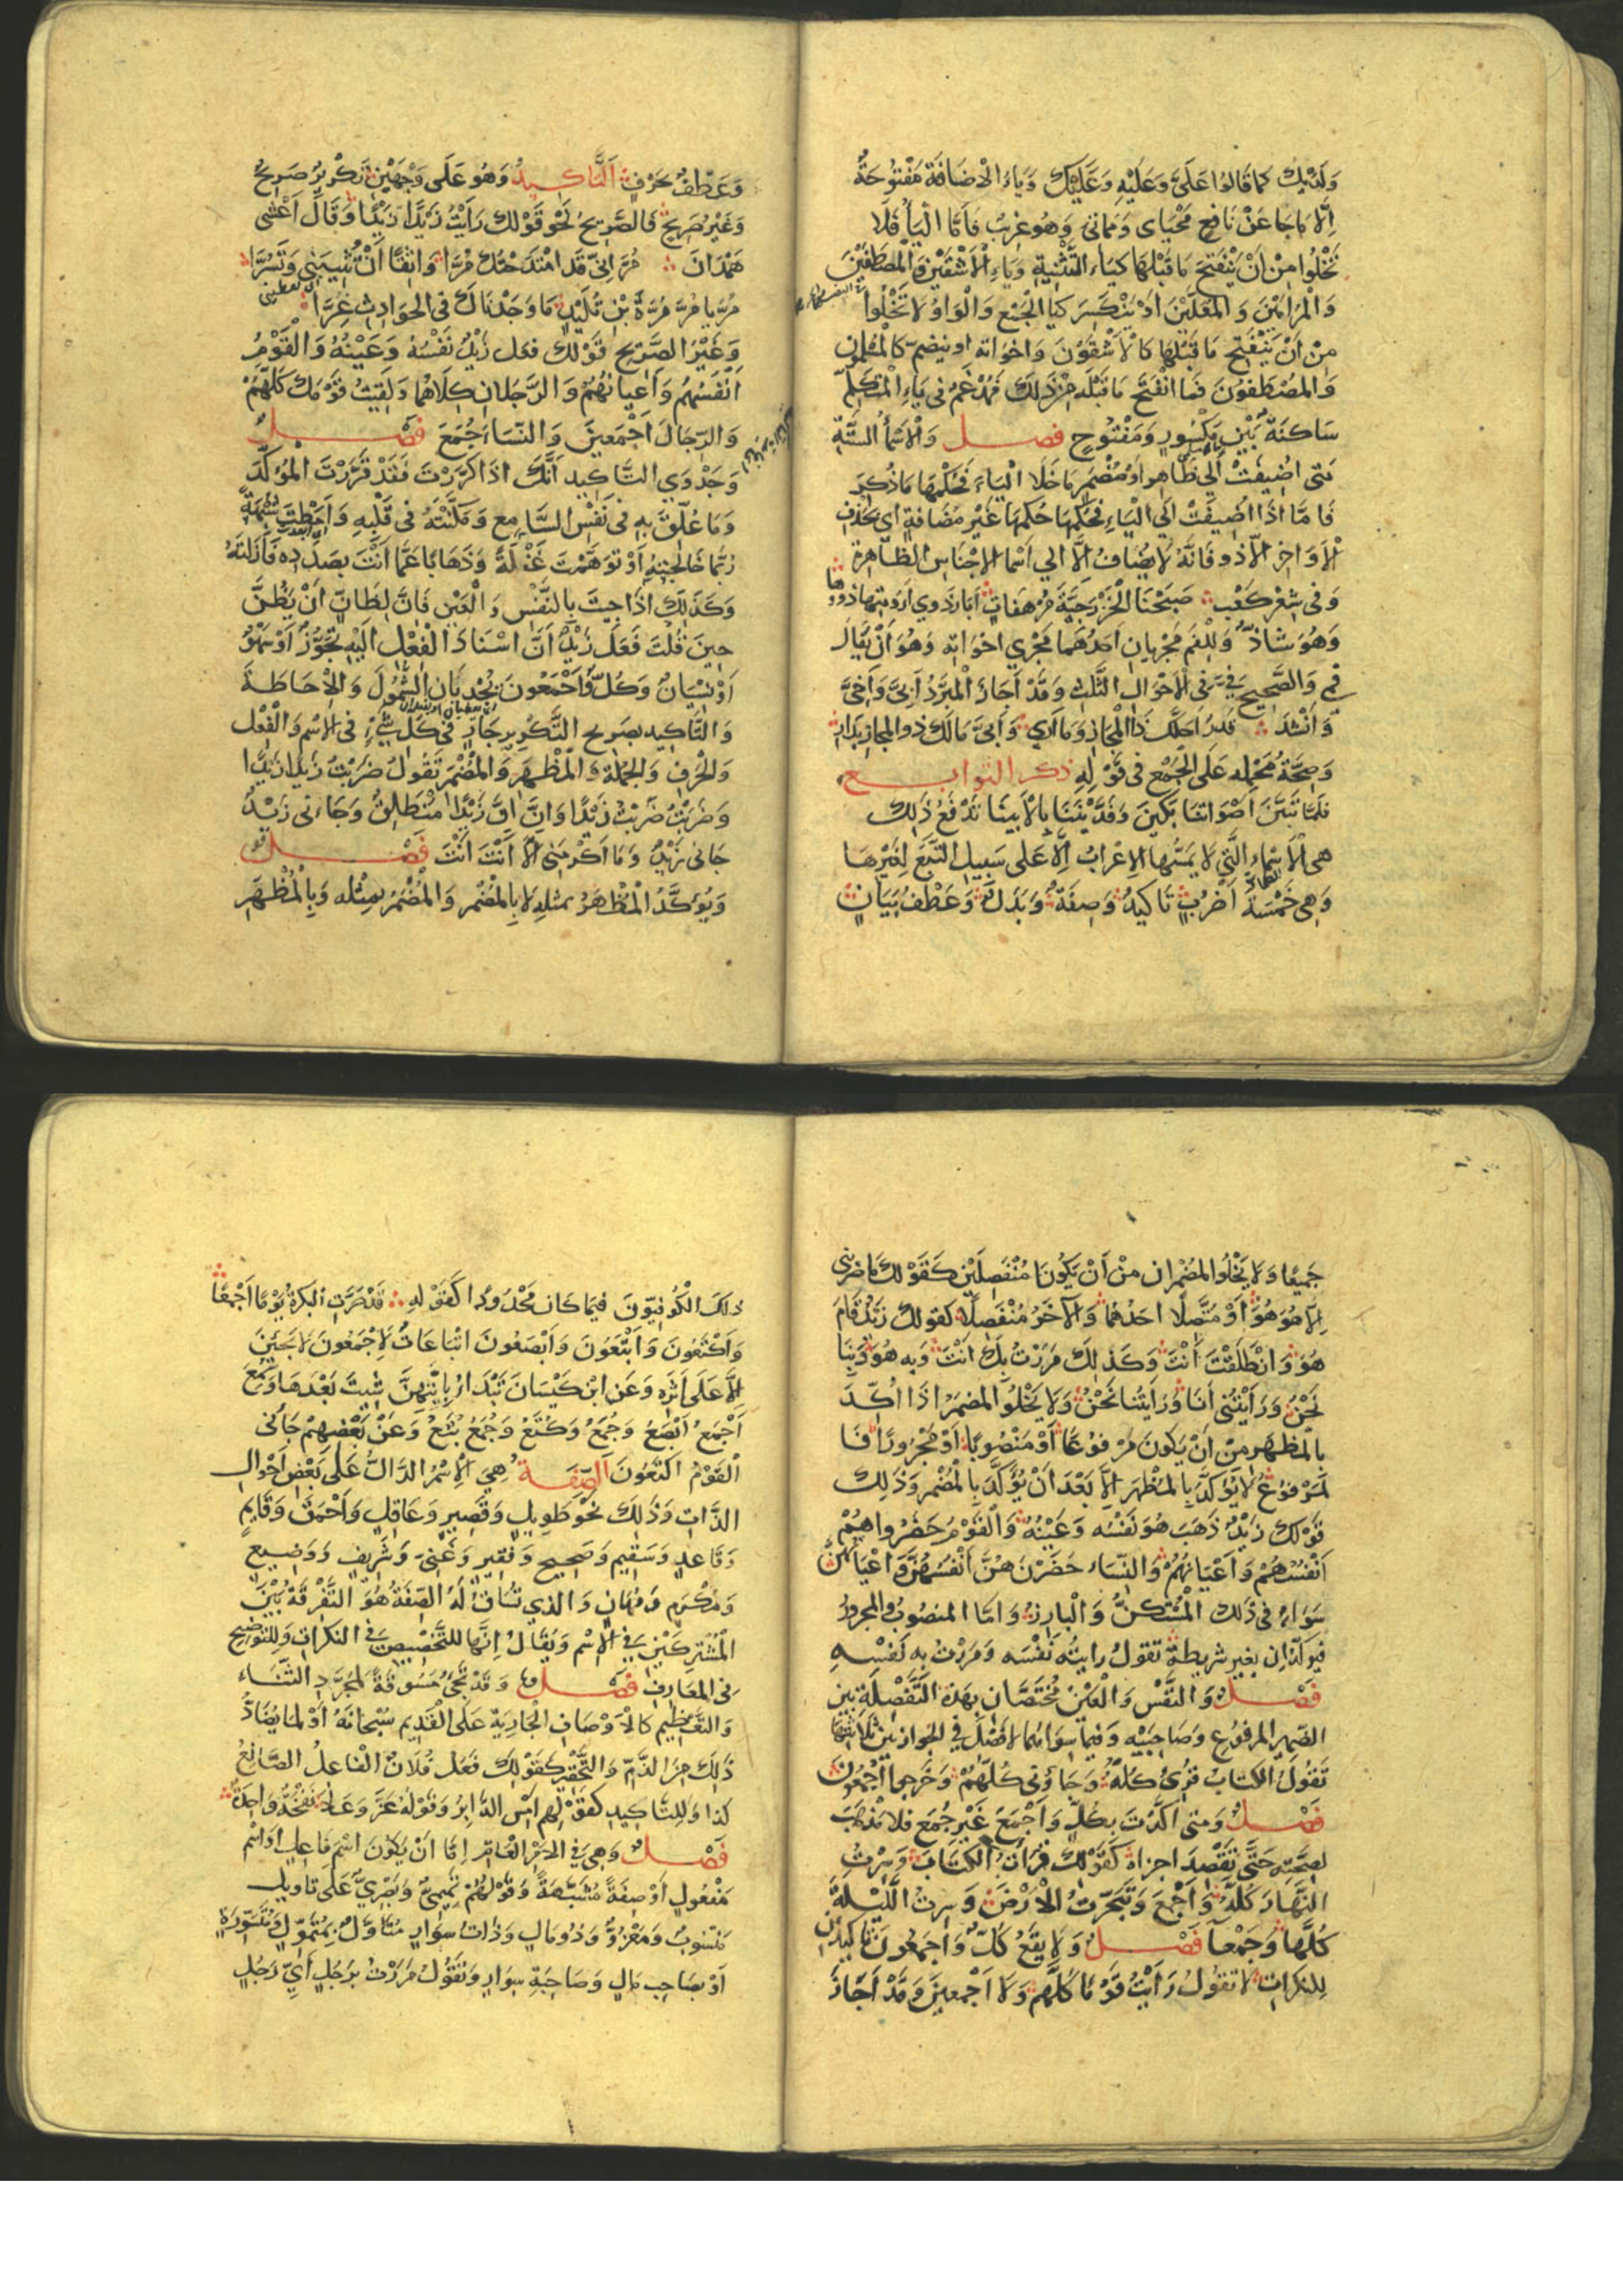 وَلَدَيْكَ كما قالوا عَلَيَّ وَعَلَيْهِ وَعَلَيْكَ وَيَاءُ الْاضَافَةِ مَفْتُوحَةٌ
اِلَّا مَا جَا عَنْ نَافِعٍ مَحْيَاى وَمماتى وَهُوَ غريبٌ فَاَمَّا الْيَاْ فَلَا
تَخْلُوا مِنْ اَنْ يَنْفَتِحَ مَا قَبْلَهَا كَيَاءِ التَّثْنِيَةِ وَيَاءِ الْاَشْقَيْنَ وَالْمصْطَفَيْنَ
وَالْمُرَامَيْنَ وَالمُعَلَّيْنَ اَوْ يَنْكَسِرَ كَيَا الْجَمْعِ وَالْوَاوُ لَا تَخْلُوا
مِنْ اَنْ يَنْفَتِحَ مَا قَبْلَهَا كَالْاَشْقَوْنَ وَاخواته او ينضمّ كالمُسْلِمون
وَالمُصْطَفَوْنَ فَمَا انْفَتَحَ مَا قَبْلَه مِنْ ذَلِكَ فَمُدْغَمٌ فى يَاءِ الْمُتَكَلِّمِ
سَاكنَةً بَيْنَ مَكْسُورٍ وَمَفْتُوحٍ فصل وَالْاَسْمَاُ السِّتَّةِ
مَتى اُضِيفَتْ اِلَى ظَاهِرٍ اَوْ مُضْمَرٍ مَا خَلَا الْيَاءَ فَحُكْمُهَا مَا ذُكِرَ
فَاَمَّا اِذَا اُضِيفَتْ اِلَى الْيَاءِ فَحُكْمُهَا حُكْمُهَا غَيْرَ مُضَافَةٍ اى بحَذْفِ
الْاَوَاخِرِ الّا ذو فَانَّهُ لَا يُضَافُ اِلَّا الى اَسْمَا الاجْنَاسِ الظَّاهِرَةِ
وَفى شِعْرِ كَعْبٍ صَبَحْنَا الْخَزْرَجِيَّةَ مُرْهَفَاتٍ اَبَارَ ذَوِي اَرُومَتِهَا ذَوُوهَا
وَهُوَ شَاذٌّ وَلِلْفَمِ مَجْرَيَانِ اَحَدُهُمَا مَجْرَى اَخَوَاتِهِ وَهُوَ اَنْ يُقَالَ
فمِى وَالصَّحِيحُ فِيَّ فى الْاَحْوَالِ الثَّلٰثِ وَقَدْ اَجَازَ الْمُبَرَّدُ اَبِيَّ وَاَخِيَّ
وَاَنْشَدَ قَدَرٌ اَحَلَّكَ ذَا الْمَجَازِ وَمَا اَرَى وَاَبِيَّ مَا لَكَ ذو المجازِ بِدَارِ
وَصِحَّةُ مَحْمِلِهِ عَلَى الْجَمْعِ فى قَوْلِهِ ذكر التوابع
فَلَمَّا تَبَيَّنَّ اَصْوَاتنَا بَكَينَ وَفَدَّيْنَنَا بِالْاَبِينَا تَدْفَعُ ذَلِكَ
هى الْاَسْمَاءُ الَّتِي لَا يَمَسُّهَا الاِعْرَابُ اِلَّا عَلَى سَبِيلِ التَّبَعِ لِغَيْرِهَا
وَهِى خَمْسَةُ اَضْرُبٍ تَاكيدٌ وَصِفَةٌ وَبَدَلٌ وَعَطْفُ بَيَانٍ
وَعَطْفٌ بحَرْفٍ اَلتَّاكيدُ وَهُو عَلَى وَجْهَيْنِ تَكْرِيرٌ صَرِيحٌ
وَغَيْرُ صَرِيحٍ فَالصَّرِيحُ نَحْوُ قَوْلِكَ رَاَيْتُ زَيْدًا زَيْدًا وَقَالَ اَعْشَى
هَمْدَانَ مُرَّ اِنِّى قَد امْتَدَحْتُكَ مُرَّا وَاثِقًا اَنْ تُثِيبَنِى وَتَسُرَّا
مُرَّ يَا مُرَّ مُرَّةَ بْنِ تُلَيْدٍ مَا وَجَدْنَاكَ فى الحَوَادِثِ غِرَّا
وَغَيْرُ الصَّرِيحِ قَوْلكَ فعَلَ زَيْدٌ نَفْسُهُ وَعَيْنُهُ وَالْقَوْمُ
اَنْفُسُهُمْ وَاَعْيَانُهُمْ وَالرَّجُلَانِ كِلَاهُمَا وَلَقِيتُ قَوْمَكَ كُلَّهُمْ
وَالرِّجَالَ اَجْمَعِينَ وَالنِّسَاءَ جُمَعَ فصل
وَجَدْوَى التَّاكِيدِ اَنَّكَ اذَا كَرَّرْتَ فَقَدْ قَرَّرْتَ المُؤَكَّدَ
وَمَا عُلِّقَ بِهِ فى نَفْسِ السَّامِعِ وَمَكَّنْتَهُ فى قَلْبِهِ وَاَمَطْتَ شُبْهَةً
رُبَّمَا خَالَجَتْهُ اَوْ تَوَهَّمْتَ غَفْلَةً وَذَهَابًا عَمَّا اَنْتَ بِصَدَدِهِ فَاَزَلْتَهُ
وَكَذَلِكَ اِذَا جِيتَ بِالنَّفْسِ وَالْعَيْنِ فَاِنَّ لِظَانٍّ اَنْ يَظُنَّ
حِينَ قُلْتَ فَعَلَ زَيْدٌ اَنَّ اسْنَادَ الْفِعْلِ اِلَيْهِ تَجَوُّزٌ اَوْ سَهْوٌ
اَوْ نِسْيَانٌ وَكُلٌّ وَاَجْمَعُونَ يُجْدِيَانِ الشُّمُولَ وَالْاِحَاطَةَ
وَالتَّاكِيدُ بِصَرِيحِ التَّكْرِيرِ جَارٍ فى كُلِّ شَيْءٍ فى الاسْمِ وَالْفِعْلِ
وَالْحَرْفِ وَالْجُمْلَةِ وَالْمُظْهَرِ وَالْمُضْمَرِ تَقُولُ ضَرَبْتُ زَيْدًا زَيْدًا
وَضَرَبْتُ ضَرَبْتُ زَيْدًا وَاِنَّ اِنَّ زَيْدًا مُنْطَلِقٌ وَجَاءنى زَيْدٌ
جَانى زَيْدٌ وَمَا اَكْرَمَنِى اِلَّا اَنْتَ اَنْتَ فصل
وَيُؤَكَّدُ الْمُظْهَرُ بمثلِهِ لَا بِالْمُضْمَرِ وَالْمُضْمَرُ بِمِثْلِهِ وَبِالْمُظْهَرِ
جَمِيعًا وَلَا يَخْلُوا المُضْمَرانِ مِنْ اَنْ يَكُونَا مُنْفَصِلَيْنِ كَقَوْلِكَ مَا ضَرَبَنِى
اِلَّا هُوَ هُوَ اَوْ مُتَّصِلًا اَحَدُهُمَا وَالْآخَرُ مُنْفَصِلًا كَقولكَ زَيْدٌ قَامَ
هُوَ وَانْطَلَقْتَ اَنْتَ وَكَذلكَ مَرَرْتُ بِكَ اَنْتَ وَبِهِ هُوَ وَبِنَا
نَحْنُ وَرَاَيْتُنِى اَنَا وَرَاَيْتُنا نَحْنُ وَلَا يَخْلُوا المُضمَرُ اذَا اُكِّدَ
بِالْمُظْهَرِ مِنْ اَنْ يَكُونَ مَرْفُوعًا اَوْ مَنْصُوبًا اَوْ مَجْرُورًا فَا
لْمَرْفُوعُ لَا يُؤَكَّدُ بِالْمُظْهَرِ اِلَّا بَعْدَ اَنْ يُؤَكَّدَ بِالْمُضْمَرِ وَذَلِكَ
قَوْلكَ زَيْدٌ ذَهَبَ هُوَ نَفْسُه وَعَيْنُهُ وَالْقَوْمُ حَضَرُوا هُمْ
اَنْفُسُهُمْ وَاَعْيَانُهُمْ وَالنِّسَاء حَضَرْنَ هُنَّ اَنْفُسُهُنَّ وَاَعْيَانُهُنَّ
سَوَاءٌ فى ذَلكَ الْمُسْتَكِنُّ وَالْبَارِزُ وَامَّا المنصُوبُ وَالمجرورُ
فيُوكَّدَانِ بِغير شَرِيطةٍ تقولُ رايتُه نَفْسَه وَمَرَرْتُ بِه نَفْسِهِ
فصل وَالنَّفْسُ وَالْعَيْنُ مُخْتَصَّانِ بِهَذِهِ التَّفْصِلَةِ بين
الضَّمِيرِ المَرفُوعِ وَصَاحِبَيْهِ وَفيمَا سِوَاهُمَا لَا فَصْلَ فِى الجواز بين ثَلَاثَتِهَا
تَقُولُ الكتَابُ قُرِئَ كُلُّهُ وَجَاؤنى كُلُّهُمْ وَخَرجوا اَجْمَعُونَ
فصل وَمَتى اَكَّدْتَ بِكُلٍّ وَاَجْمَعَ غَيْرَ جُمَعَ فَلَا مَذْهَبَ
لِصِحَّتِهِ حَتَّى تَقْصِدَ اجزاءً كَقَوْلِكَ قَرَاْتُ الكتَابَ وَسِرْتُ
النَّهَارَ كُلَّهُ وَاَجْمَعَ وَتَبَحَّرْتُ الْاَرْضَ وَسِرْتُ اللَّيْلَةَ
كُلَّهَا وَجَمْعَا فصل وَلَا يَقَعُ كُلٌّ وَاَجمَعُونَ تَاكِيدَيْنِ
لِلنكراتِ لَا تَقُولُ رَاَيْتُ قَوْمًا كُلَّهُمْ وَلَا اَجْمَعِينَ وَقَدْ اَجَازَ
ذلك الْكُوفِيّونَ فيمَا كَانَ مَحْدُودًا كَقَوْلِهِ قَدْ صَرَّتِ الْبَكْرَةُ يَوْمًا اَجْمَعَا
وَاَكْتَعُونَ وَاَبْتَعُونَ وَاَبْصَعُونَ اتْبَاعَاتٌ لِاَجْمَعُونَ لَا يَجِيْنَ
اِلَّا عَلَى اَثَرِهِ وَعَن ابْنِ كَيْسَانَ تَبْتَدئُ بِاَيَّتِهِنَّ شِيتَ بَعْدَهَا وَسُمِعَ
اَجْمَعُ اَبْصَعُ وَجُمَعُ وَكُتَعُ وَجُمَعُ بُتَعُ وَعَنْ بَعْضِهِمْ جَاَنى
الْقَوْمُ اَكْتَعُونَ الصِّفَةُ هِيَ الْاِسْمُ الدَّالُّ عَلَى بَعْضِ اَحْوَالِ
الذَّاتِ وَذَلِكَ نَحْوُ طَوِيلٍ وَقَصِيرٍ وَعَاقِلٍ وَاَحْمَقَ وَقَايِمٍ
وَقَاعِدٍ وَسَقِيمٍ وَصَحِيحٍ وَفَقِيرٍ وَغَنِيٍّ وَشَرِيفٍ وَوَضِيعٍ
وَمُكْرَمٍ وَمُهَانٍ وَالذِى تُسَاقُ لَهُ الصِّفَةُ هُوَ التَّفْرِقَةُ بَيْنَ
الْمُشْتَرِكَيْنِ فِى الْاِسْمِ وَيُقَالُ اِنَّهَا لِلتَّخْصِيصِ فِى النكراتِ وَلِلتَّوْضِيحِ
فى المَعَارِفِ فصل وَقَدْ تَجِىُ مَسُوقَةً لِمُجَرَّدِ الثَّنَاءِ
وَالتَّعْظِيمِ كَالْاَوْصَافِ الْجَارِيَةِ عَلَى الْقَدِيمِ سُبْحَانَهُ اَوْ لِمَا يُضَادُّ
ذَلِكَ مِنَ الذَّمِّ وَالتَّحْقِيرِ كَقَوْلِكَ فَعَلَ فُلَانٌ الْفَاعِلُ الصَّانِعُ
كذا وَلِلتَّاكِيدِ كَقَوْلِهِمْ اَمْسِ الدَّابِرُ وَقَوْلُهُ عَزَّ وَعَلَا نَفْخَةٌ وَاحِدَةٌ
فصل وَهِيَ فِى الْاَمْرِ الْعَامِّ اِمَّا اَنْ يَكُونَ اسْمَ فَاعِلٍ اَوِ اسْم
مَفْعُولٍ اَوْ صِفَةً مُشَبَّهَةً وَقَوْلُهُمْ تَمِيمِيٌّ وَبَصْرِيٌّ عَلَى تاويل
مَنْسُوبٌ وَمَعْزُوٌّ وَذُو مَالٍ وَذَاتُ سِوَارٍ مُتَاَوَّلٌ بِمُتَمَوِّلٍ وَمُتَسَوِّرَةٍ
اَوْ بِصَاحِبِ مَالٍ وَصَاحِبَةِ سِوَارٍ وَتَقُولُ مَرَرْتُ بِرَجُلٍ اَيِّ رَجُلٍ